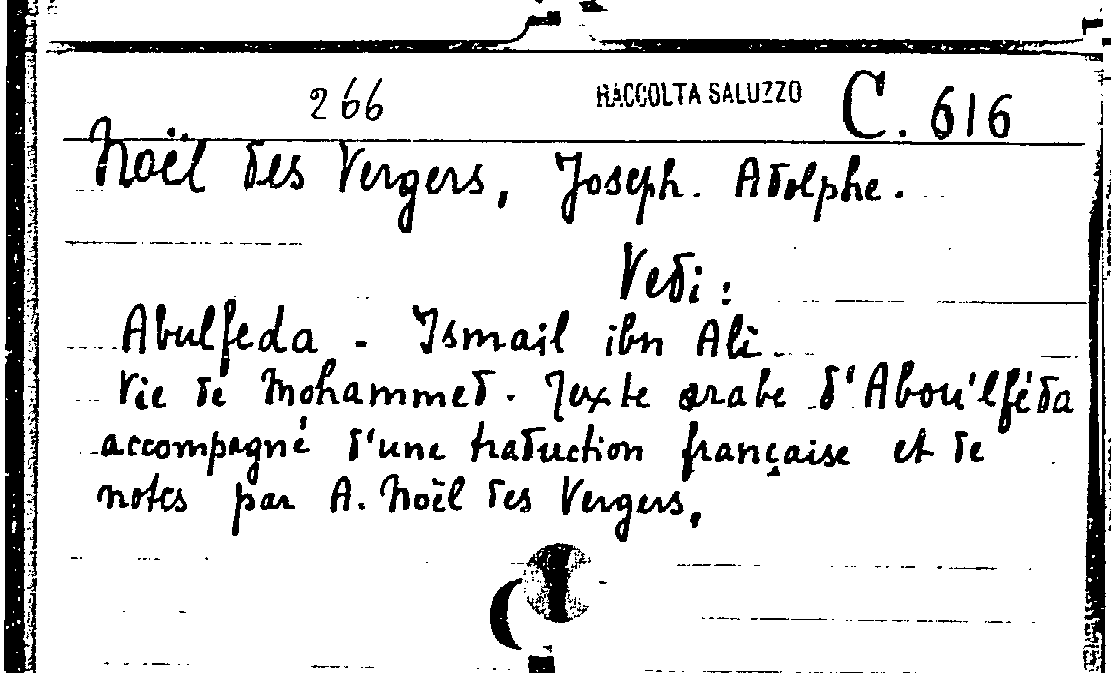 266 RACCOLTA SALUZZO C. 616
Noël des Vergers, Joseph. Adolphe.
Vedi:
Abulfeda - Ismail ibn Ali
Vie de Mohammed. Texte arabe d'Abou'lféda
accompagné d'une traduction française et de
notes par A. Noël des Vergers,